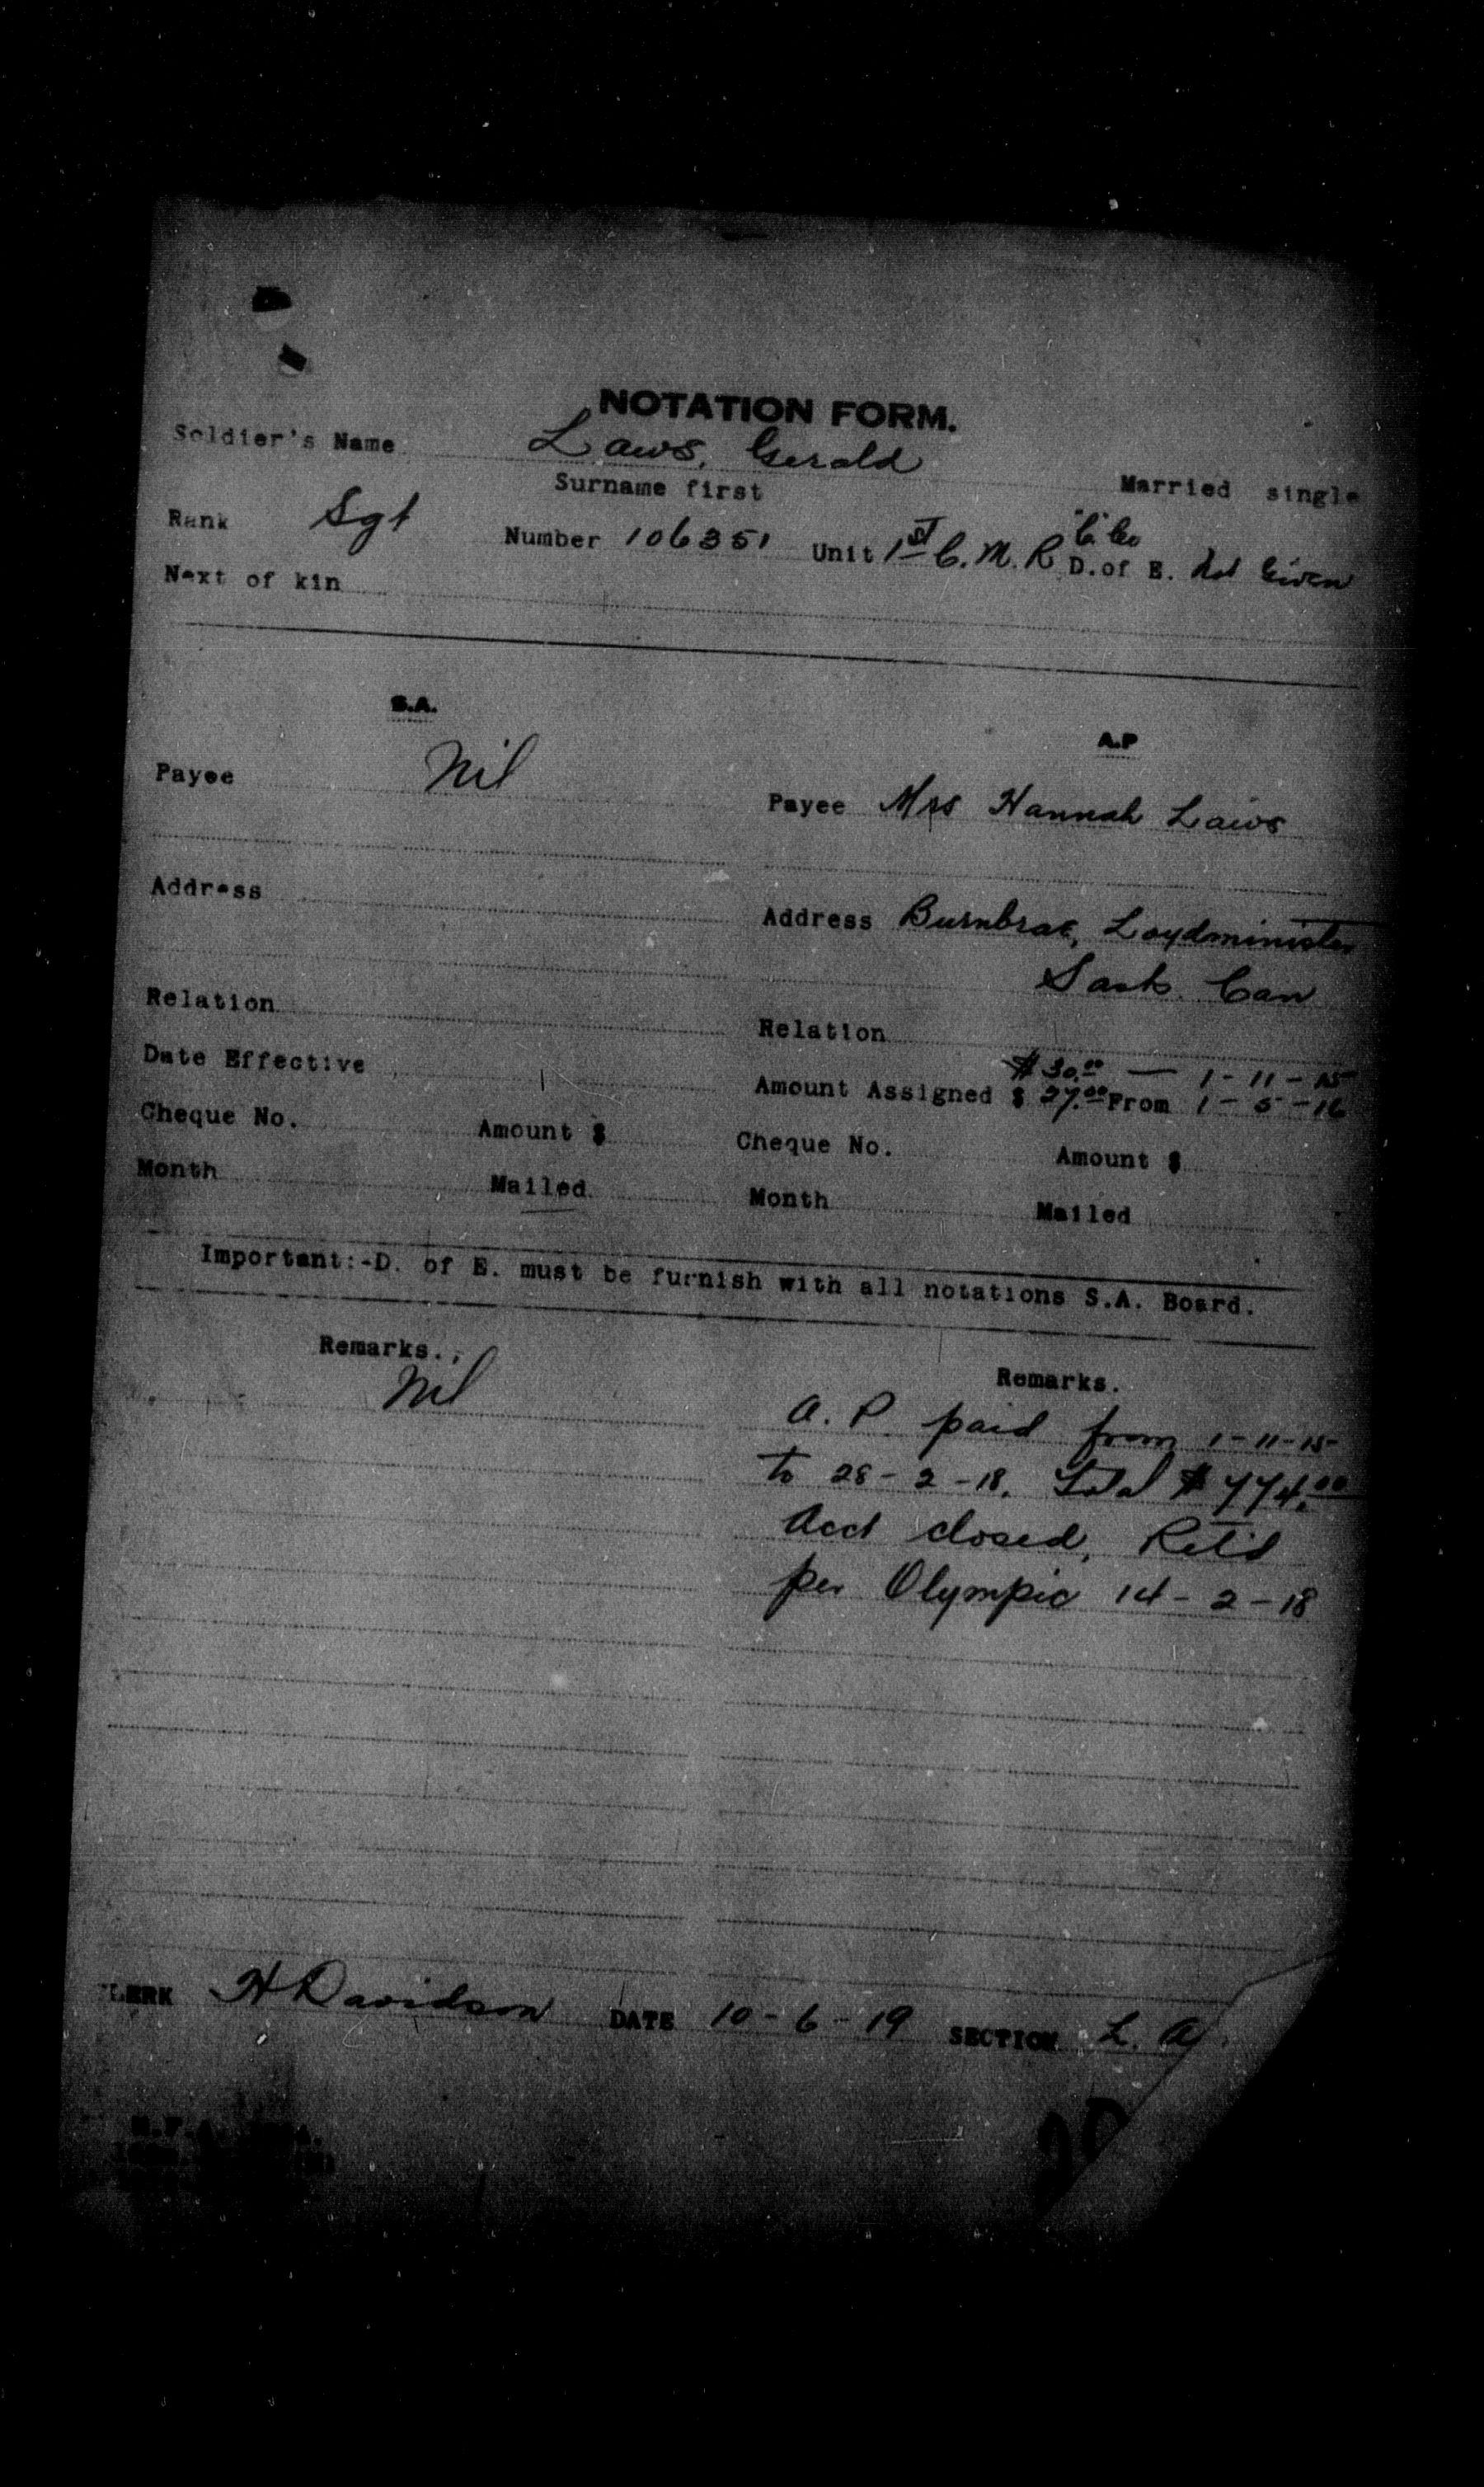 NOTATION FORM.
Soldier's Name Laws, Gerald
Surname first Married single
"C" Co
Rank Sgt Number 106351 Unit 1st C.M.R. D.of E. Not Given
Next of kin
S.A. A.P
Payee Nil Payee Mrs Hannah Laws
Address Address Burnbrae, Loydminister
Sask. Can
Relation Relation
$30.00 — 1-11-15
Date Effective Amount Assigned $ 27.00 From 1-5-16
Cheque No. Amount $ Cheque No. Amount $
Month Mailed Month Mailed
Important:-D. of E. must be furnish with all notations S.A. Board.
Remarks., Remarks.
Nil A.P. paid from 1-11-15
to 28-2-18. Total $774.00
Acct closed, Ret'd
per Olympic 14-2-18
CLERK H Davidson DATE 10-6-19 SECTION L. A.